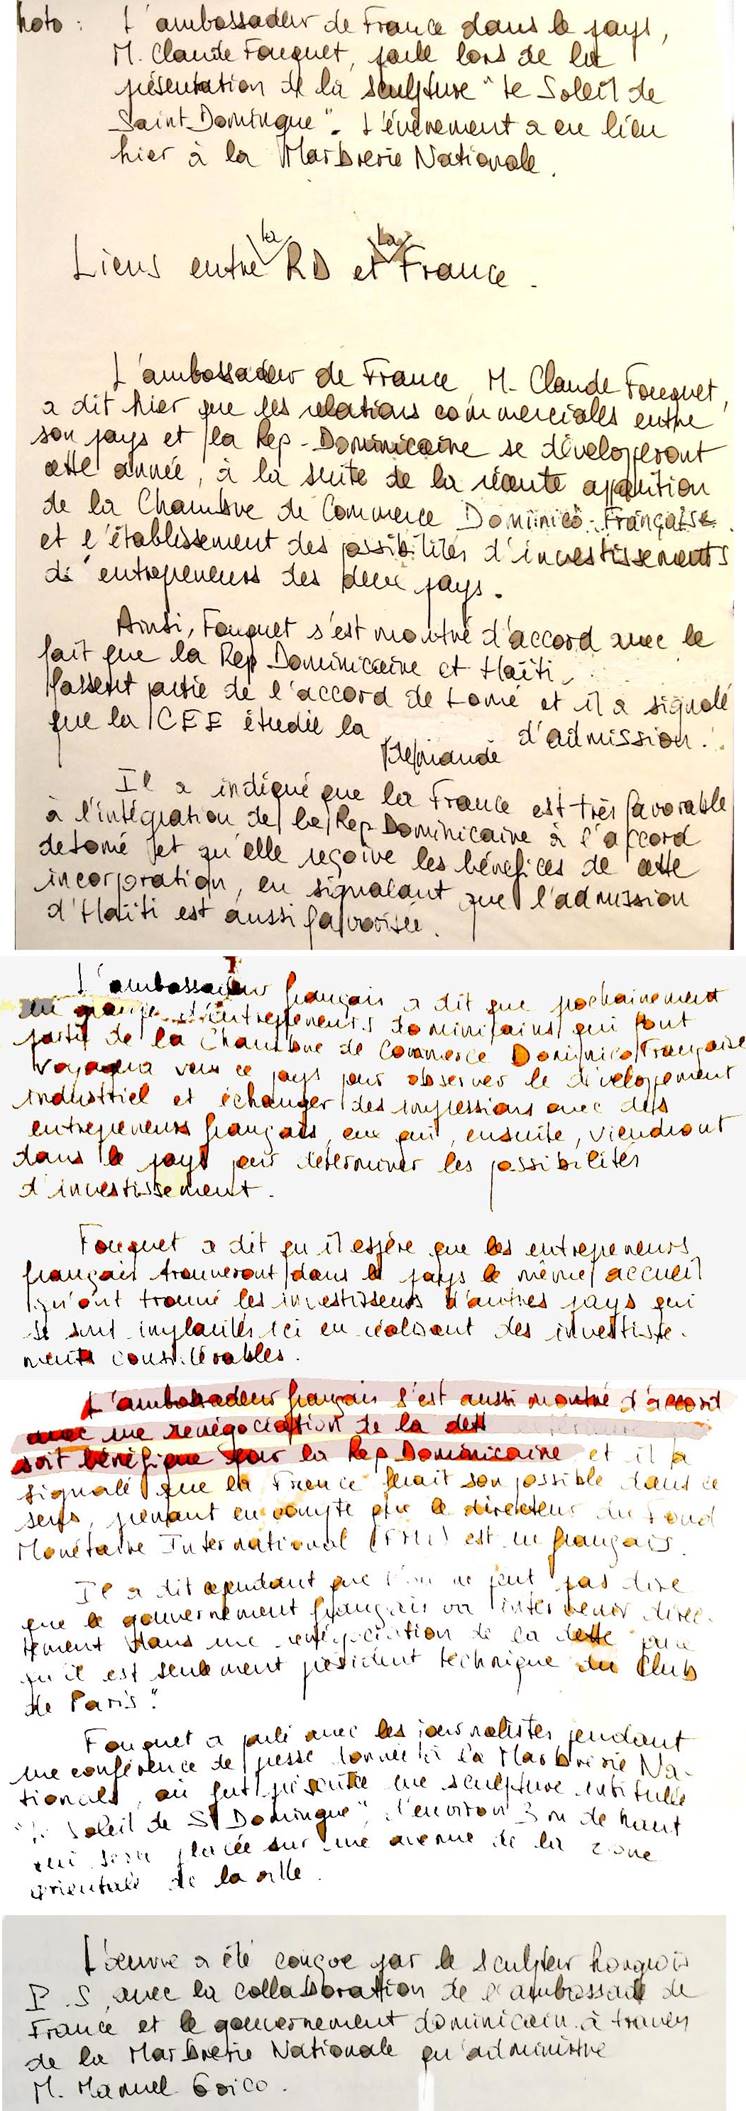 hoto : L'ambassadeur de France dans le pays,
M. Claude Fouquet, parle lors de la
présentation de la sculpture "Le Soleil de
Saint Domingue". L'événement a eu lieu
hier à la Marbrerie Nationale.
Liens entre la RD et la France.
L'ambassadeur de France M. Claude Fouquet,
a dit hier que les relations commerciales entre
son pays et la Rep. Dominicaine se développeront
cette année, à la suite de la récente apparition
de la Chambre de Commerce Dominico-Française
et l'établissement des possibilités d'investissements
d'entrepreneurs des deux pays.
Ainsi, Fouquet s'est montré d'accord avec le
fait que la Rep Dominicaine et Haïti
fassent partie de l'accord de Lomé et il a signalé
que la CEE étudie la demande d'admission.
Il a indiqué que la France est très favorable
à l'intégration de la Rep Dominicaine à l'accord
de Lomé et qu'elle reçoive les bénéfices de cette
incorporation, en signalant que l'admission
d'Haïti est aussi favorisée.
L'ambassadeur français a dit que prochainement
un groupe d'entrepreneurs dominicains qui font
partie de la Chambre de Commerce Dominico Française
voyagera vers ce pays pour observer le développement
industriel et échanger des impressions avec des
entrepreneurs français, eux qui, ensuite, viendront
dans le pays pour déterminer les possibilités
d'investissement.
Fouquet a dit qu'il espère que les entrepreneurs
français trouveront dans le pays le même accueil
qu'ont trouvé les investisseurs d'autres pays qui
se sont implantés ici en réalisant des investisse-
ments considérables.
L'ambassadeur français s'est aussi montré d'accord
avec une renégociation de la dette
soit bénéfique pour la Rep Dominicaine et il a
signalé que la France ferait son possible dans ce
sens, prenant en compte que le directeur du Fond
Monétaire International (FMI) est un français.
Il a dit cependant que l'on ne peut pas dire
que le gouvernement français va intervenir direc-
tement dans une renégociation de la dette parce
qu'il est seulement président technique du Club
de Paris".
Fouquet a parlé avec les journalistes pendant
une conférence de presse donnée à la Marbrerie Na-
tionale, où fut présentée une sculpture intitulée
"Le Soleil de St Domingue", d'environ 3 m de haut
qui sera placée sur une avenue de la zone
orientale de la ville.
L'œuvre a été conçue par le sculpteur hongrois
P. S, avec la collaboration de l'ambassade de
France et le gouvernement dominicain à travers
de la Marbrerie Nationale qu'administre
M. Manuel Goico.